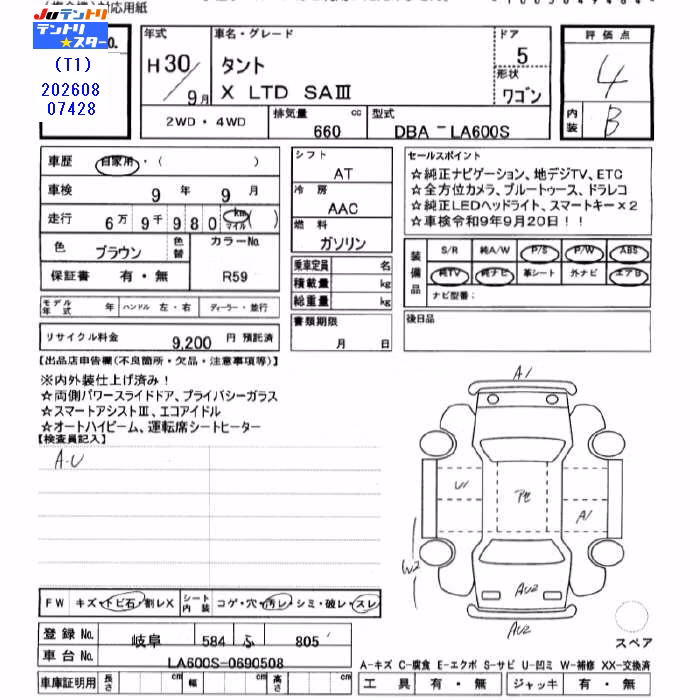 対応用紙
JUテントリ
テントリ★スター
(T1)
202608
07428
No.
年式
H30/9月
車名・グレード
タント
X LTD SAⅢ
ドア
5
形状
ワゴン
評価点
4
内装
B
2WD・4WD
排気量
660 cc
型式
DBA-LA600S
車歴 自家用・( )
車検 9年 9月
走行 6万9千980 km マイル ( )
色 ブラウン 色替
カラーNo. R59
保証書 有・無
モデル年式 年 ハンドル 左・右 ディーラー・並行
リサイクル料金 9,200 円 預託済
シフト
AT
冷房
AAC
燃料
ガソリン
乗車定員 名
積載量 kg
総重量 kg
書類期限
月 日
セールスポイント
☆純正ナビゲーション、地デジTV、ETC
☆全方位カメラ、ブルートゥース、ドラレコ
☆純正LEDヘッドライト、スマートキー×2
☆車検令和9年9月20日!!
装備品
S/R 純A/W P/S P/W ABS
純TV 純ナビ 革シート 外ナビ エアB
ナビ型番:
後日品
【出品店申告欄(不良箇所・欠品・注意事項等)】
※内外装仕上げ済み!
☆両側パワースライドドア、プライバシーガラス
☆スマートアシストⅢ、エコアイドル
☆オートハイビーム、運転席シートヒーター
【検査員記入】
A-U
A1
U1
A1
W2
AU2
AU2
FW キズ・トビ石・割レX シート内装 コゲ・穴・汚レ・シミ・破レ・スレ
登録No. 岐阜 584 ふ 805
車台No. LA600S-0690508
車庫証明用 長さ cm 幅 cm 高さ cm
スペア
A-キズ C-腐食 E-エクボ S-サビ U-凹ミ W-補修 XX-交換済
工具 有・無 ジャッキ 有・無